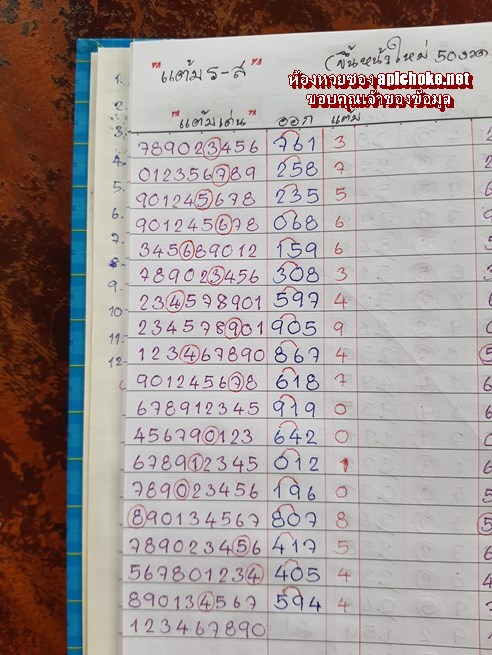 "แต้ม ร-ส" (ขึ้นหน้าใหม่ 50งวด
ห้องหวยซอง apichoke.net
ขอบคุณเจ้าของข้อมูล
"แต้มเด่น" ออก แต้ม
789023456 761 3
012356789 258 7
901245678 235 5
901245678 068 6
345689012 159 6
789023456 308 3
234578901 597 4
234578901 905 9
123467890 867 4
901245678 618 7
678912345 919 0
456790123 642 0
678912345 012 1
789023456 196 0
890134567 807 8
789023456 417 5
567801234 405 4
890134567 594 4
123467890
1.
2.
3.
4.
5.
6.
7.
8.
9.
10
11.
12